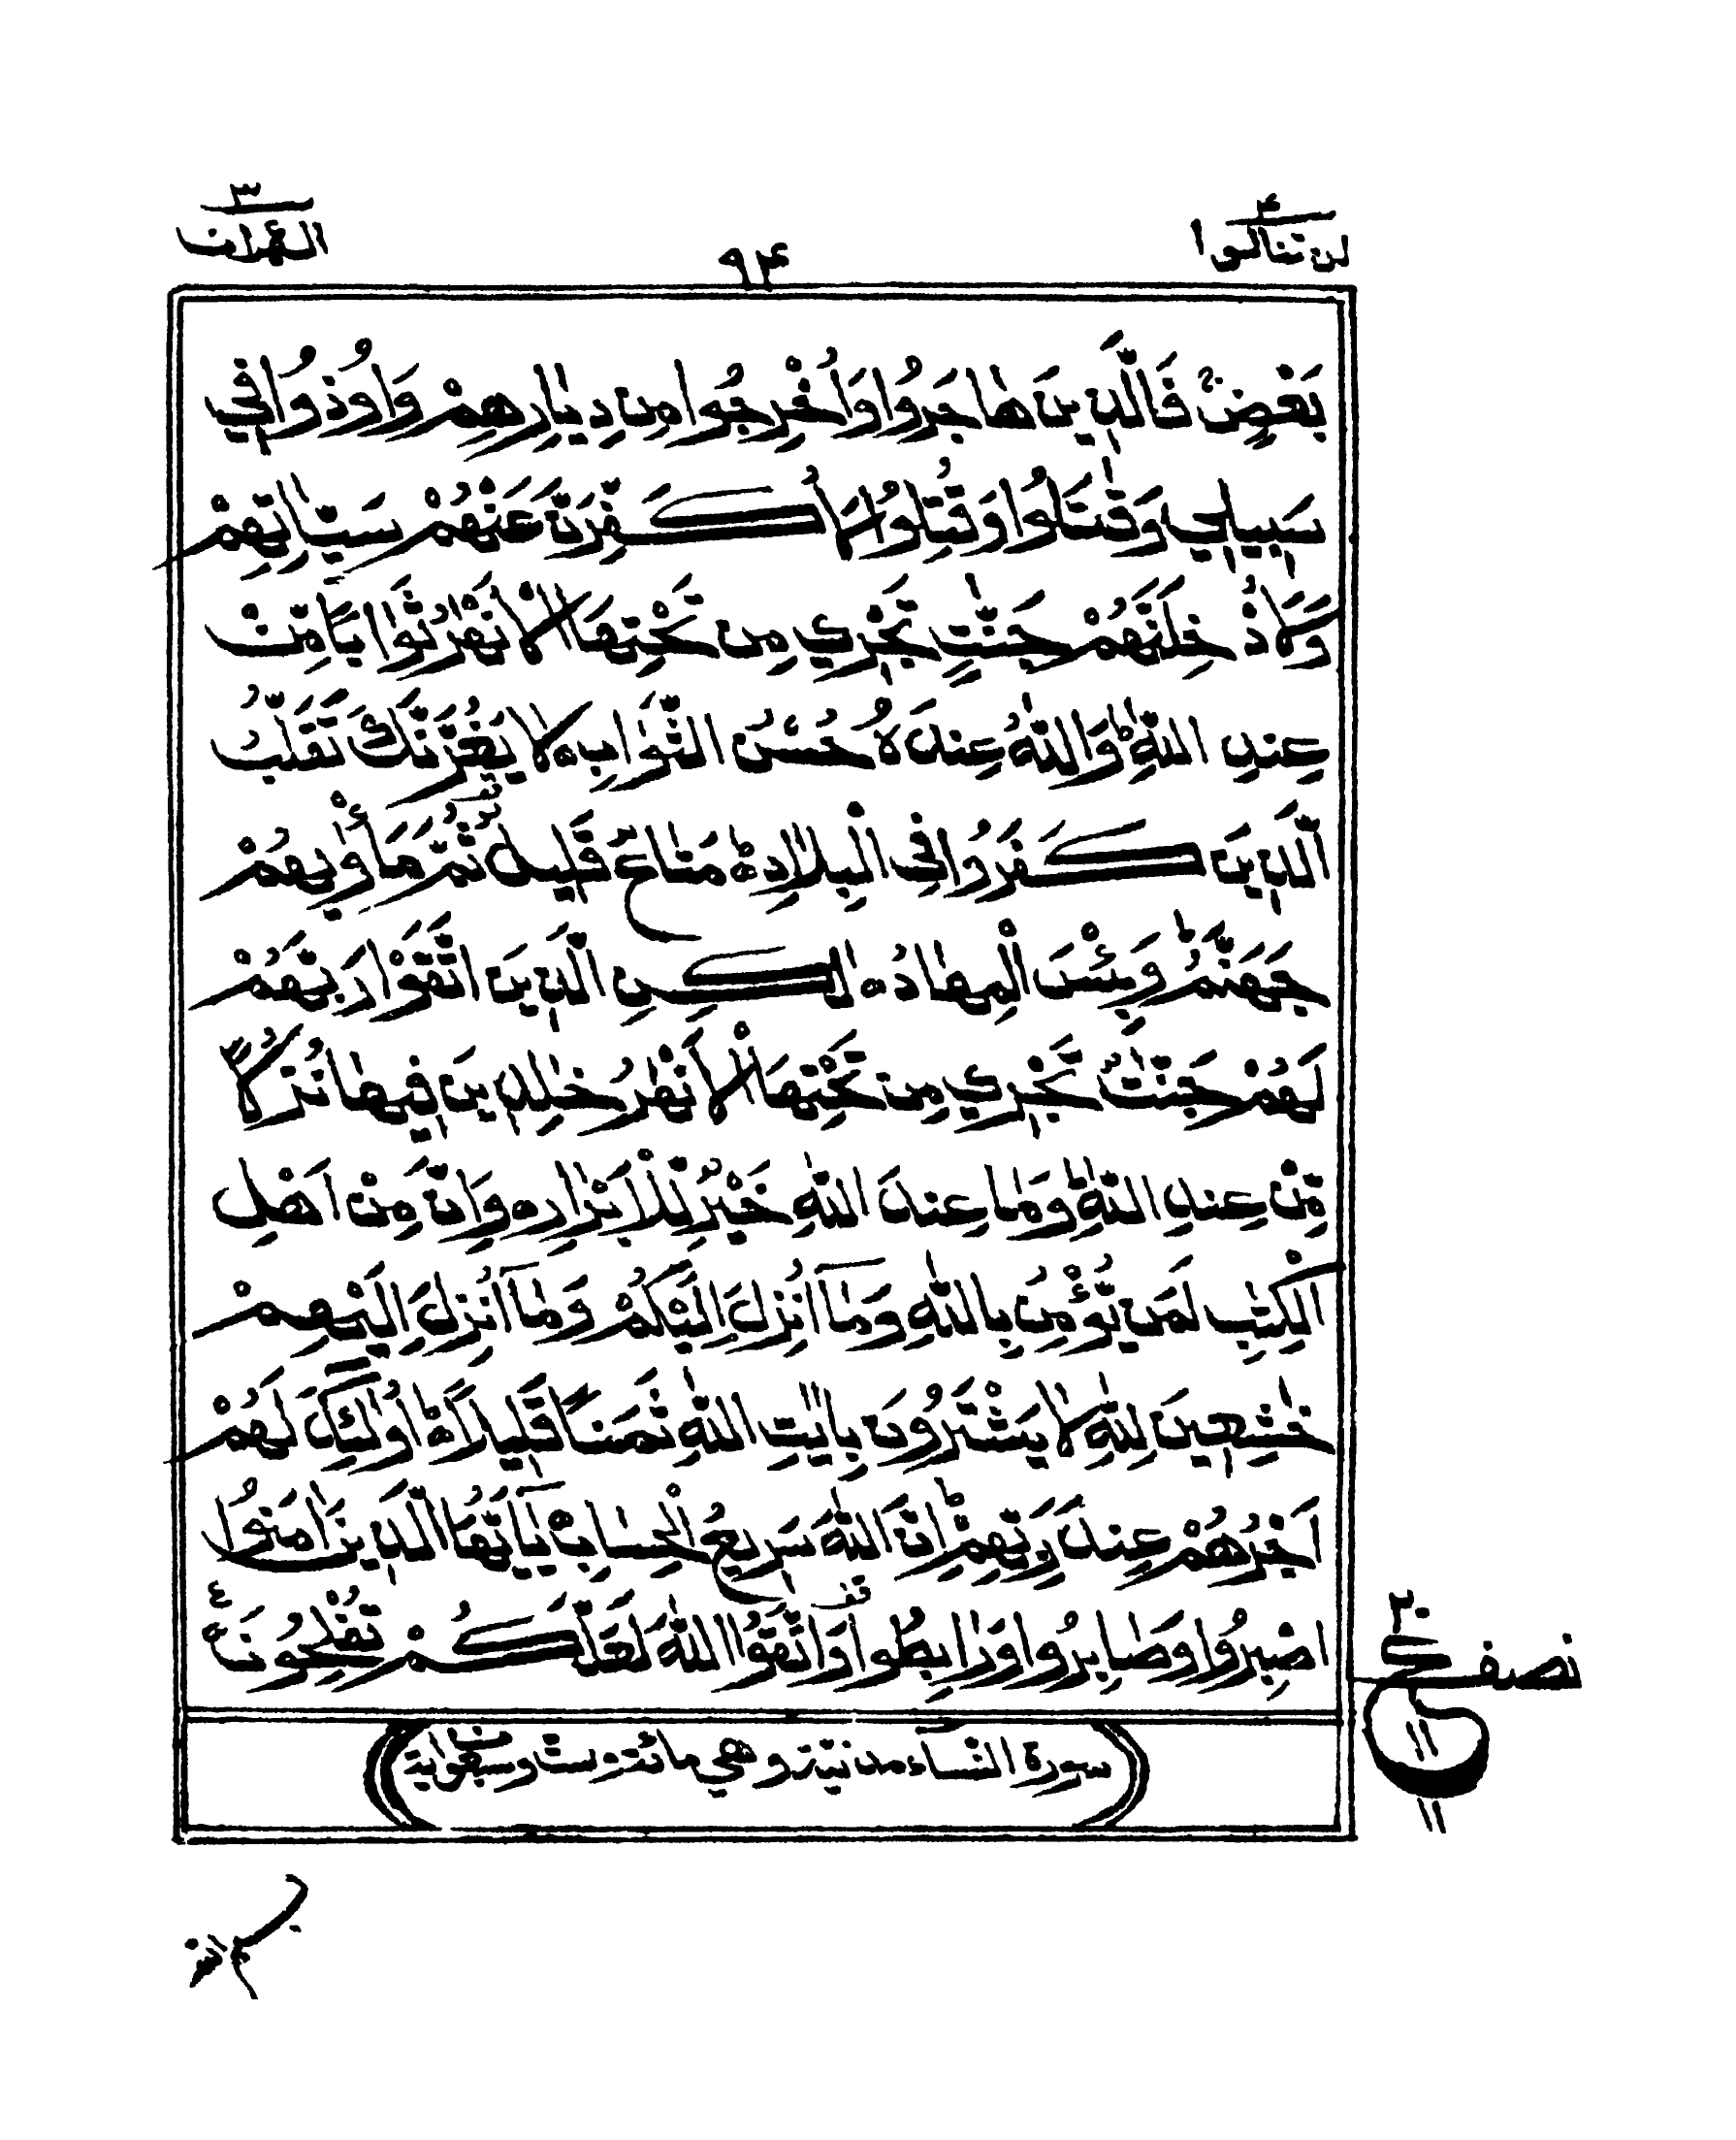 لن تنالوا ۴
۹۴
ال عمران ۳
بَعْضٍ ۚ فَالَّذِيْنَ هَاجَرُوْا وَاُخْرِجُوْا مِنْ دِيَارِهِمْ وَاُوْذُوْا فِيْ
سَبِيْلِيْ وَقٰتَلُوْا وَقُتِلُوْا لَاُكَفِّرَنَّ عَنْهُمْ سَيِّاٰتِهِمْ
وَلَاُدْخِلَنَّهُمْ جَنّٰتٍ تَجْرِيْ مِنْ تَحْتِهَا الْاَنْهٰرُ ثَوَابًا مِّنْ
عِنْدِ اللّٰهِ ؕ وَاللّٰهُ عِنْدَهٗ حُسْنُ الثَّوَابِ ه لَا يَغُرَّنَّكَ تَقَلُّبُ
الَّذِيْنَ كَفَرُوْا فِي الْبِلَادِ ه مَتَاعٌ قَلِيْلٌ ثُمَّ مَاْوٰىهُمْ
جَهَنَّمُ ؕ وَبِئْسَ الْمِهَادُ ه لٰكِنِ الَّذِيْنَ اتَّقَوْا رَبَّهُمْ
لَهُمْ جَنّٰتٌ تَجْرِيْ مِنْ تَحْتِهَا الْاَنْهٰرُ خٰلِدِيْنَ فِيْهَا نُزُلًا
مِّنْ عِنْدِ اللّٰهِ ؕ وَمَا عِنْدَ اللّٰهِ خَيْرٌ لِّلْاَبْرَارِ ه وَاِنَّ مِنْ اَهْلِ
الْكِتٰبِ لَمَنْ يُّؤْمِنُ بِاللّٰهِ وَمَآ اُنْزِلَ اِلَيْكُمْ وَمَآ اُنْزِلَ اِلَيْهِمْ
خٰشِعِيْنَ لِلّٰهِ لَا يَشْتَرُوْنَ بِاٰيٰتِ اللّٰهِ ثَمَنًا قَلِيْلًا ؕ اُولٰٓئِكَ لَهُمْ
اَجْرُهُمْ عِنْدَ رَبِّهِمْ ؕ اِنَّ اللّٰهَ سَرِيْعُ الْحِسَابِ ه يٰٓاَيُّهَا الَّذِيْنَ اٰمَنُوا
اصْبِرُوْا وَصَابِرُوْا وَرَابِطُوْا وَاتَّقُوا اللّٰهَ لَعَلَّكُمْ تُفْلِحُوْنَ
نصف
ع ۲۰
۱۱
۱۱
سورة النساء مدنية وهي مائة وست وسبعون اية